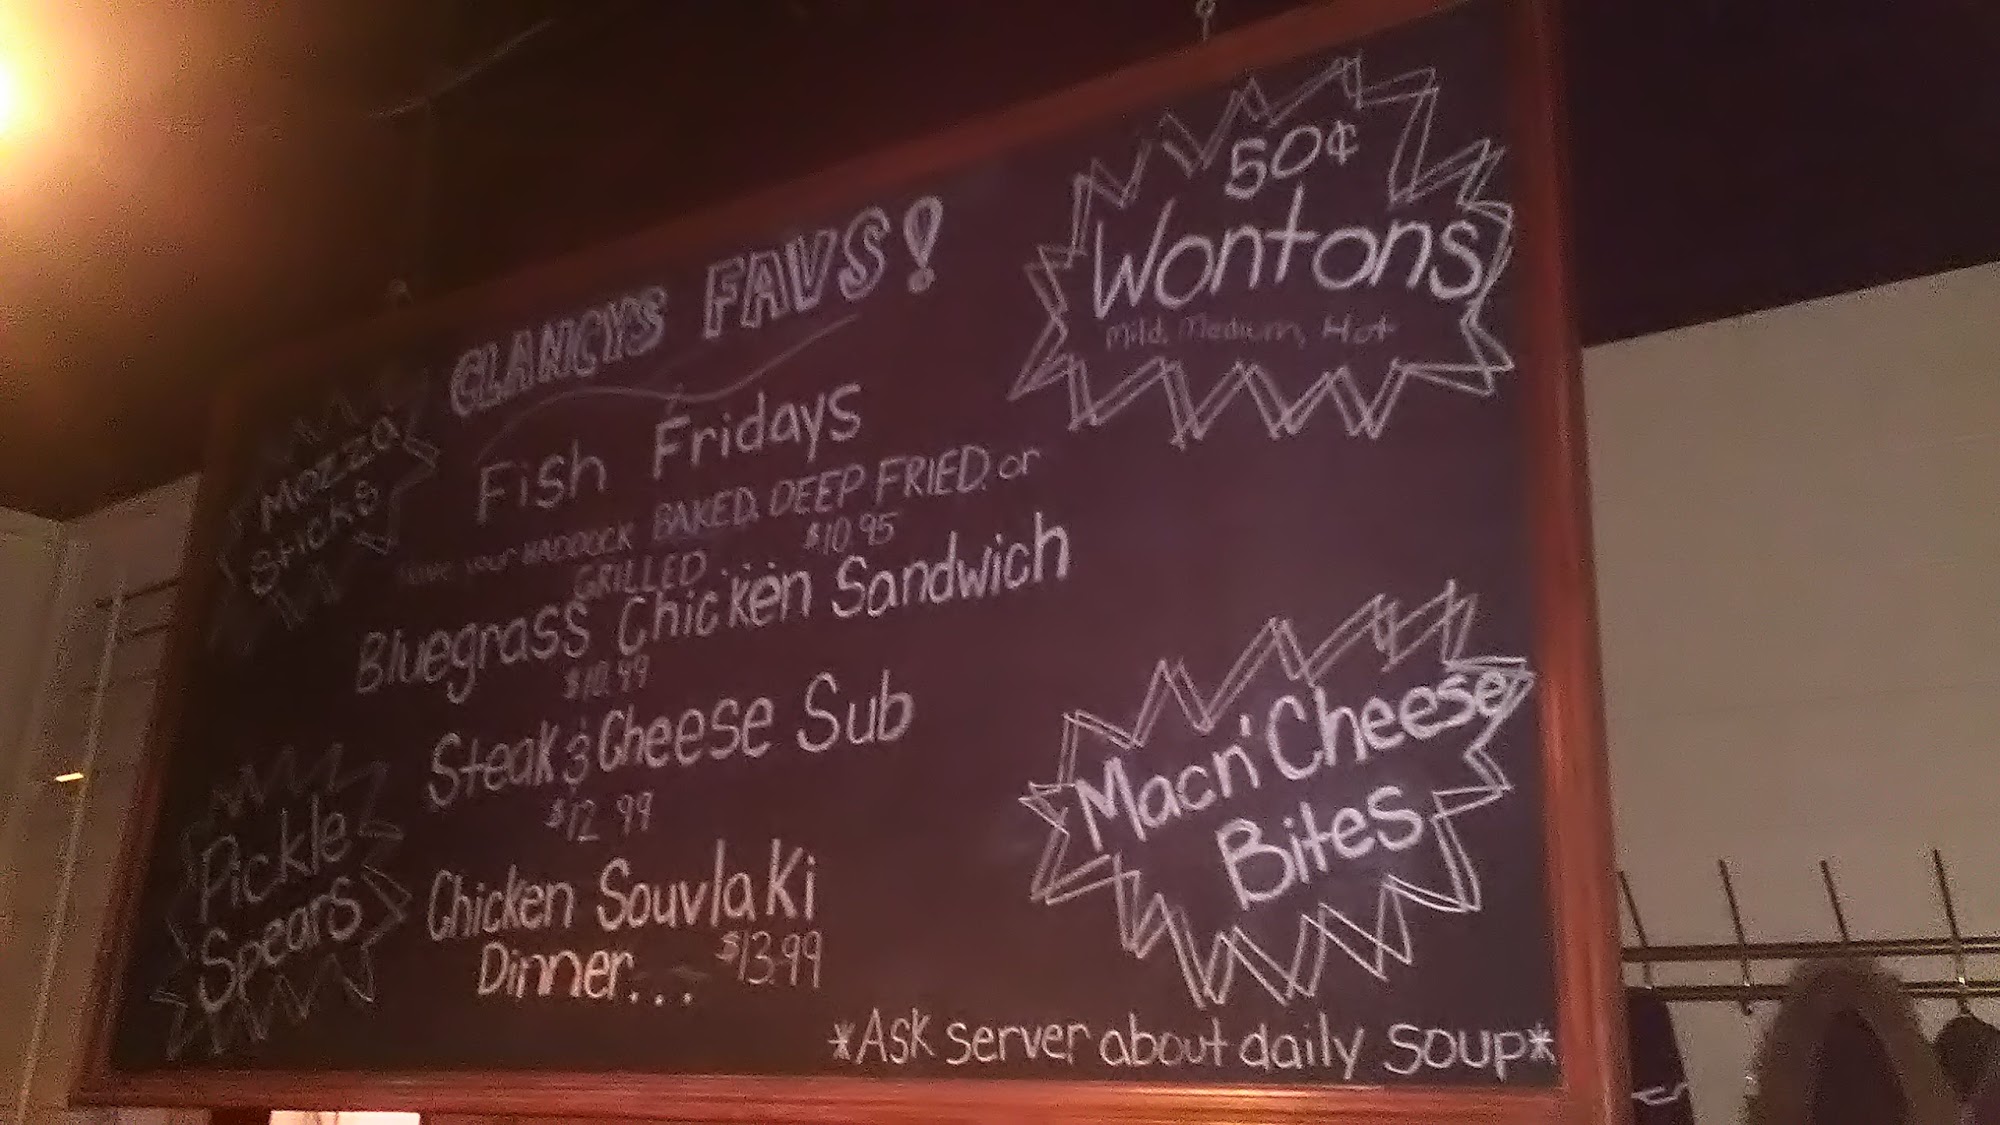 CLANCYS FAVS!
Fish Fridays
Have your HADDOCK BAKED, DEEP FRIED, or
GRILLED.... $10.95
Bluegrass Chicken Sandwich
$10.99
Steak & Cheese Sub
$12.99
Chicken Souvlaki
Dinner... $13.99
Mozza
Sticks
Pickle
Spears
50¢
Wontons
Mild, Medium, Hot
Macn' Cheese
Bites
*Ask server about daily soup*